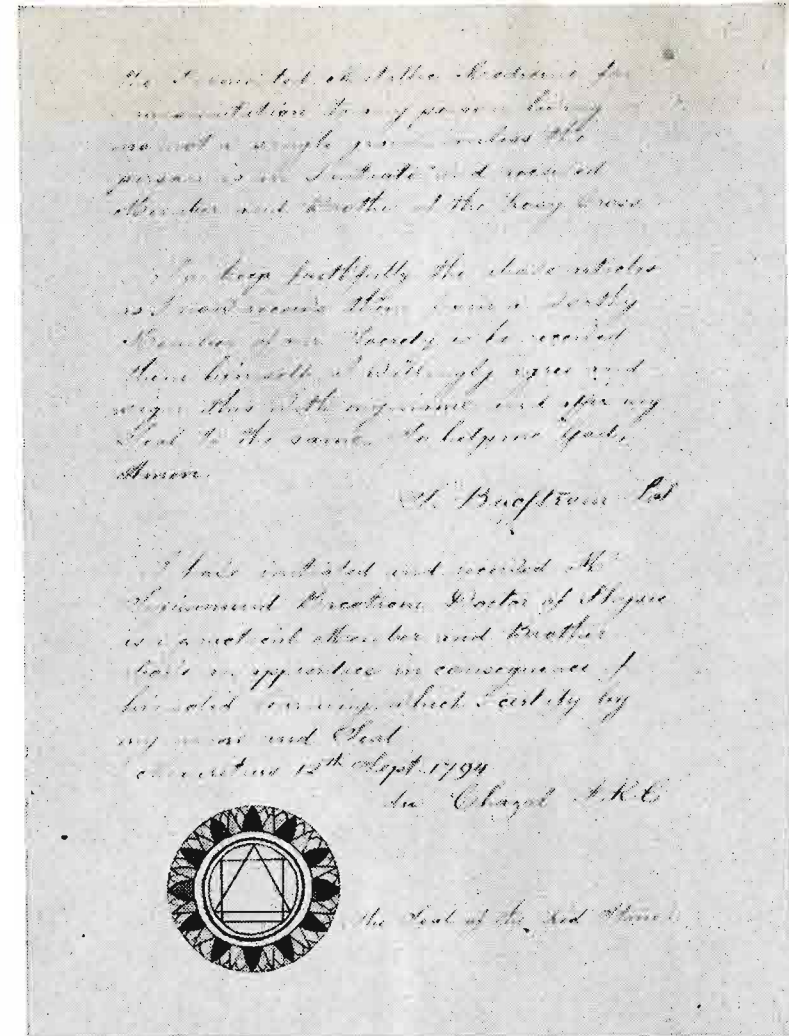 the fermented Metallic Medicine for
transmutation to any person living
no not a single grain unless the
person is an Initiated and received
Member and Brother of the Rosy Cross
To keep faithfully the above articles
as I now receive them from a worthy
Member of our Society as he received
them himself, I willingly agree and
sign this with my name and affix my
Seal to the same. So help me God.
Amen.
S. Bacstrom
I have initiated and received Mr
Sigismund Bacstrom, Doctor of Physic
as a practical Member and Brother
above an apprentice in consequence of
his solid learning which I certify by
my name and Seal
Mauritius 12th Sept. 1794
Du Chazal F.R.C
the Seal of the Red Stone